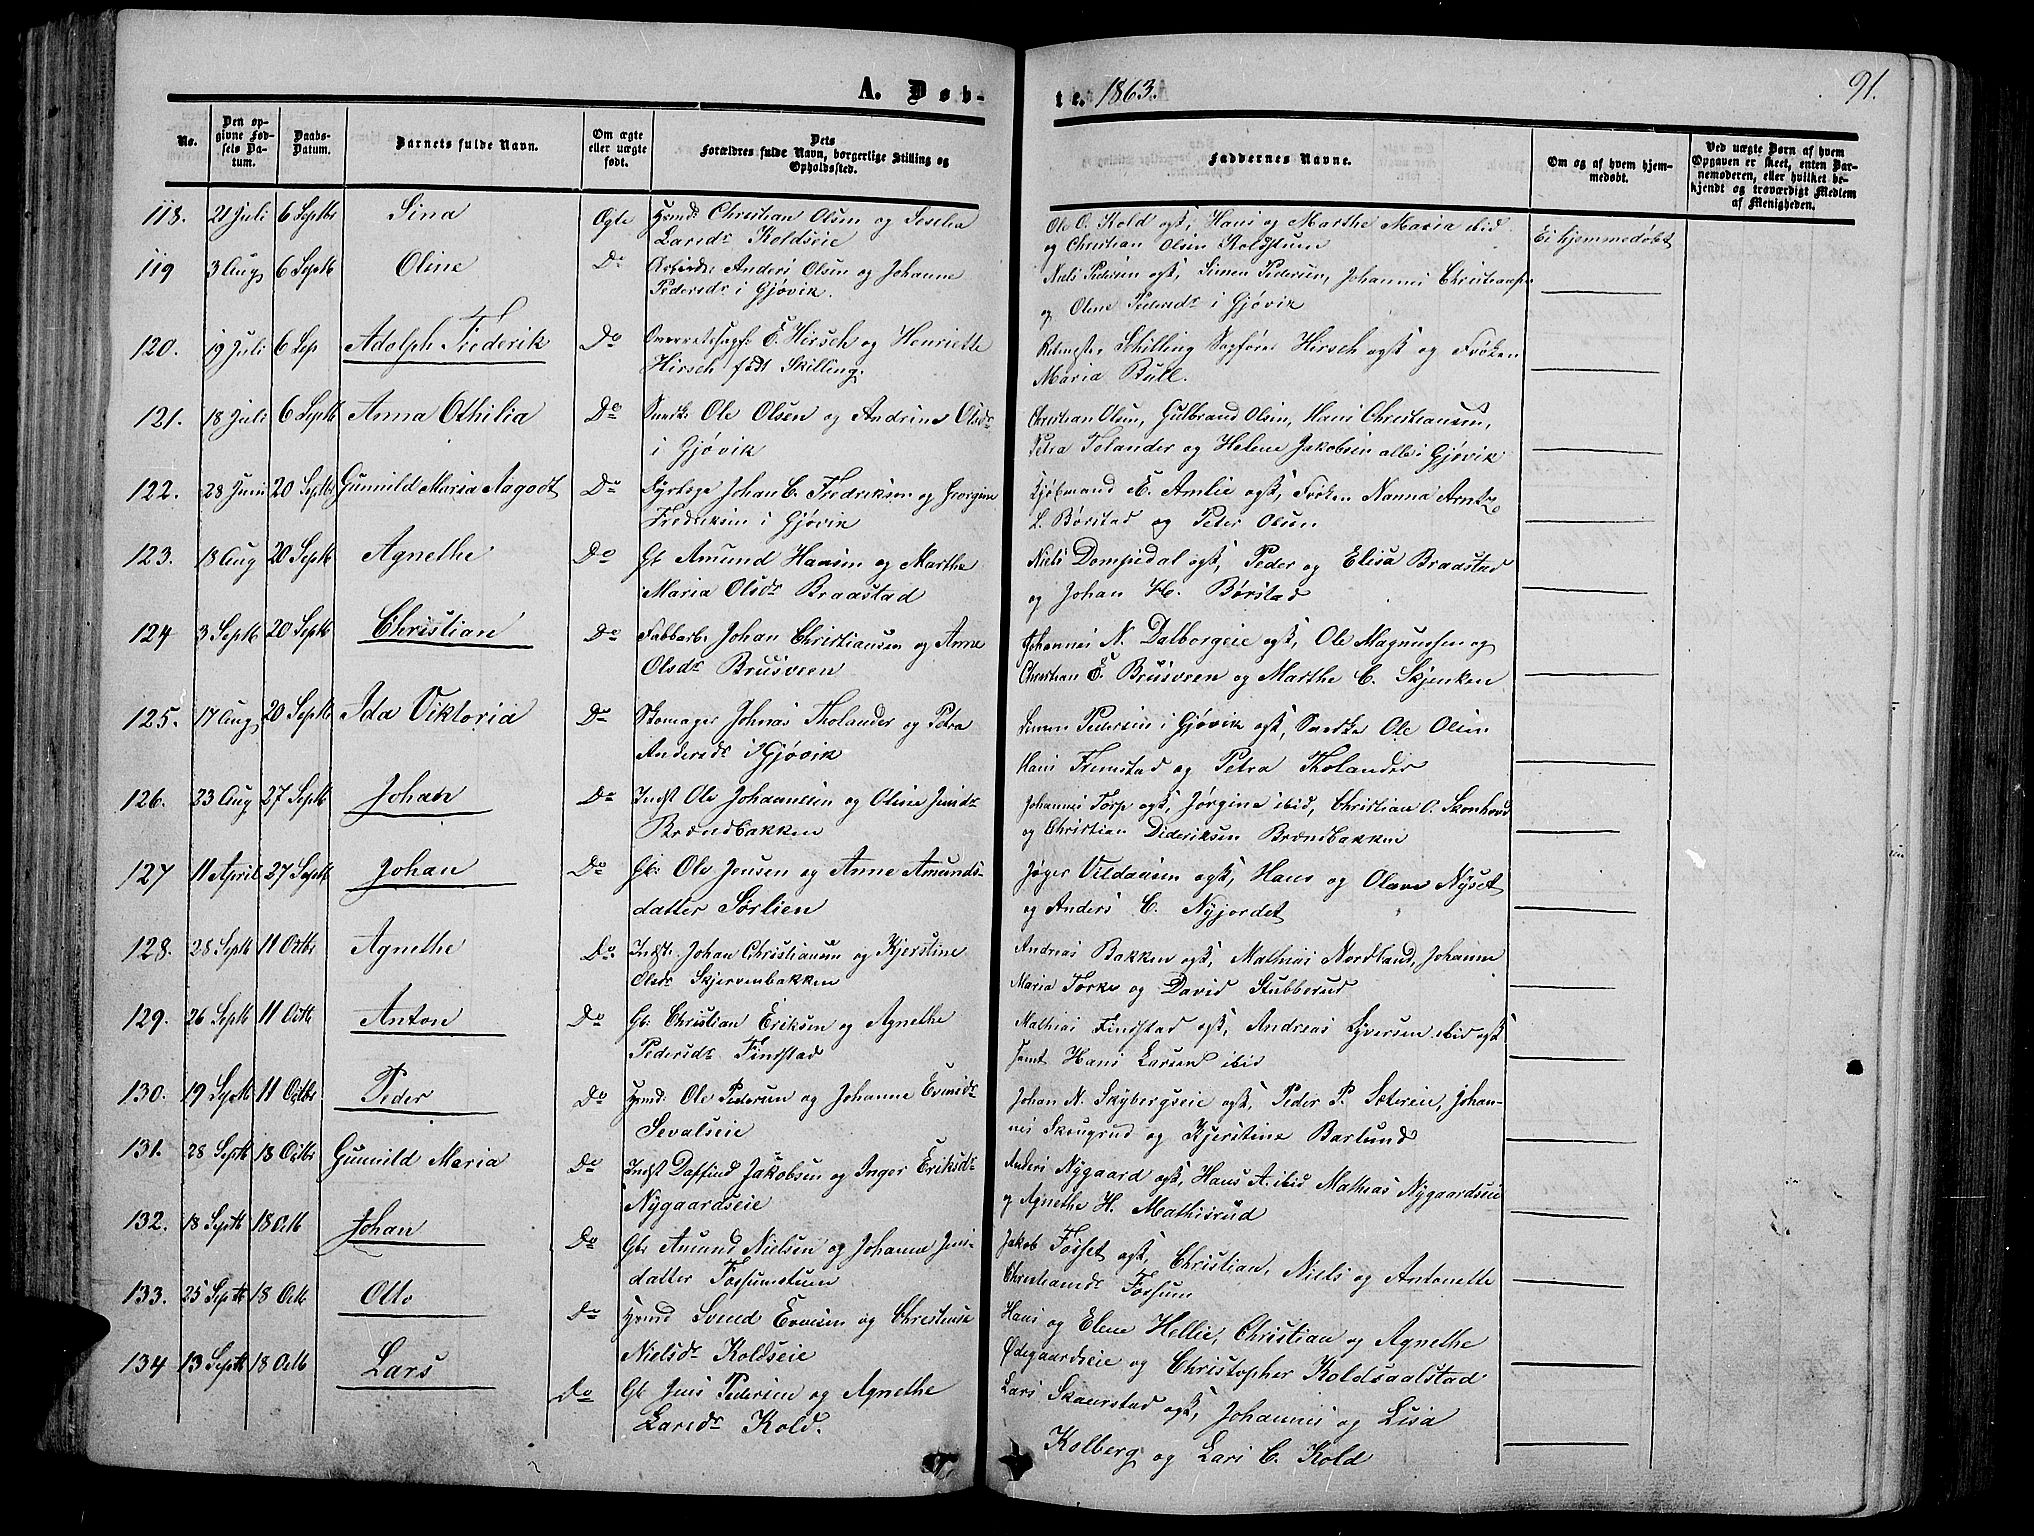 A. Døb-
te. 1863.
91.
No.
Den op-
givne Fød-
sels Da-
tum.
Daabs-
Datum.
Barnets fulde Navn.
Om ægte
eller uægte
født.
Dets
Forældres fulde Navn, borgerlige Stilling og
Opholdssted.
Faddernes Navne.
Om og af hvem hjem-
medøbt.
Ved uægte Børn af hvem
Opgaven er skeet, enten Bar-
nemoderen, eller hvilket be-
kjendt og troværdigt Medlem
af Menigheden.
118. 21 Juli 6 Septbr Sina Ægte Hmd Christian Olsen og
Larsdr Koldseie
Ole O. Kold ogs, Hans og Marthe Maria ibid
og Christian Olsen Koldstuen
Ei hjemmedøbt
119 3 Aug 6 Septb Oline Do Arbeidsm Anders Olsen og Johanne
Pedersdr i Gjøvik.
Niels Pedersen ogs, Simen Pedersen, Johannes Christiansen
og Oline Pedersdr i Gjøvik
120. 19 Juli 6 Sep Adolph Frederik Do E. Hirsch og Henriette
Hirsch født Skilling.
Schilling Sagfører Hirsch ogs og Frøken
Maria Bull.
121. 18 Juli 6 Septb Anna Othilia Do Snedk Ole Olsen og Andrine Olsdr
i Gjøvik
Christian Olsen, Gulbrand Olsen, Hans Christiansen,
Petra Tolander og Helene Jakobsen alle i Gjøvik
122. 28 Juni 20 Septb Gunnild Maria Aagodt Do Johan C. Fredriksen og Georgine
Fredriksen i Gjøvik
Kjøbmand E. Amlie ogs, Frøken Nanna Arntz,
L. Børstad og Peter Olsen
123. 18 Aug 20 Septb Agnethe Do Gb Amund Hansen og Marthe
Maria Olsdr Braastad
Niels Dompidal ogs, Peder og Elisa Braastad
og Johan H. Børstad
124 3 Septb 20 Septb Christian Do Fabbarb Johan Christiansen og Anne
Olsdr Brusveen
Johannes N. Dalborgeie ogs, Ole Magnussen og
Christian E. Brusveen og Marthe C. Skjenken
125. 17 Aug 20 Septb Ida Viktoria Do Skomager Johnas Tholander og Petra
Andersdr i Gjøvik
Simen Pedersen i Gjøvik ogs, Snedke Ole Olsen
Hans Fremstad og Petra Tholander
126. 23 Aug 27 Septb Johan Do Indst Ole Johannesen og Oline Jensdr
Brændbakken
Johannes Torp ogs, Jørgine ibid, Christian O. Skonhovd
og Christian Dideriksen Brændbakken
127 11 April 27 Septb Johan Do Gb: Ole Jensen og Anne Amunds-
datter Sørlien
Jøger Vildaasen ogs, Hans og Olave Nyset
og Anders C. Nyjordet
128. 28 Septb 11 Octbr Agnethe Do Indst. Johan Christiansen og Kjerstine
Olsdr Skjervenbakken
Andreas Bakken ogs, Mathias Nordland, Johanne
Maria Torke og David Stubberud
129. 26 Septb 11 Octb Anton Do Gb: Christian Eriksen og Agnethe
Pedersdr Findstad
Mathias Findstad ogs, Andreas Syversen ibid ogs
samt Hans Larsen ibid
130. 19 Septb 11 Octbr Peder Do Hmd. Ole Pedersen og Johanne Evensdr
Sevalseie
Johan N. Skybergseie ogs, Peder P. Sætereie, Johan-
nes Skougrud og Kjerstine Barlund
131. 28 Septb 18 Octbr Gunnild Maria Do Indst Daffind Jakobsen og Inger Eriksdr
Nygaardseie
Anders Nygaard ogs, Hans A. ibid Mathias Nygaardseie
og Agnethe H. Mathisrud
132. 18 Septb 18 Octb Johan Do Gb: Amund Nielsen og Johanne Jens-
datter Forsumstuen
Jakob Fosset ogs, Christian, Niels og Antonette
Christiansdr Forsum
133. 25 Septb 18 Octb Otto Do Hmd Svend Evensen og Christense
Nielsdr Koldseie
Hans og Elene Hellie, Christian og Agnethe
Ødegaardseie og Christopher Koldsaalstad
134 13 Septb 18 Octb Lars Do Gb Jens Pedersen og Agnethe
Larsdr Kold.
Lars Skaarstad ogs, Johannes og Lisa
Kolberg og Lars C. Kold